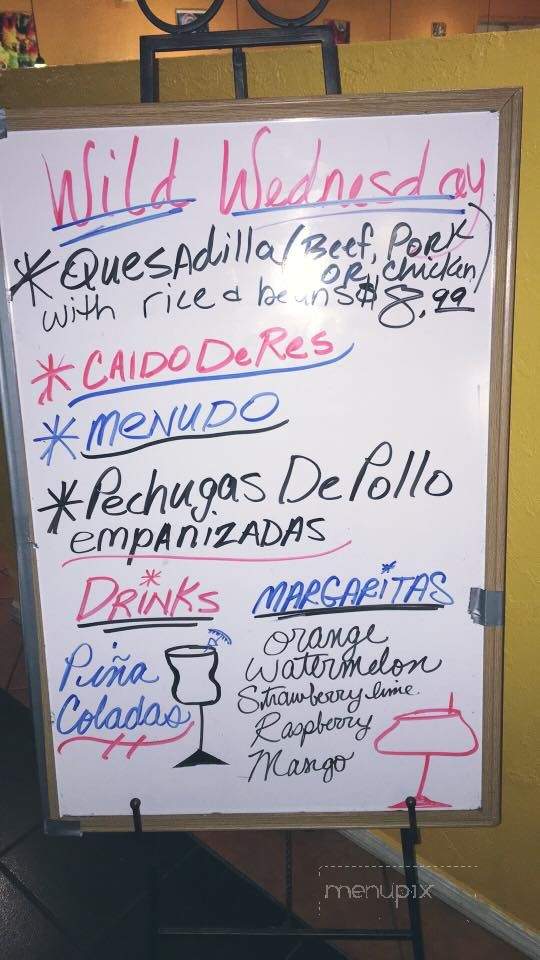 Wild Wednesday
*Quesadilla/Beef, Pork
OR chicken
with rice & beans $8.99
*CAIDO De Res
*MENUDO
*Pechugas De Pollo
empANIZADAS
DRiNKs
Piña
Coladas
MARGARiTAS
orange
Watermelon
Strawberry lime
Raspberry
Mango
menupix